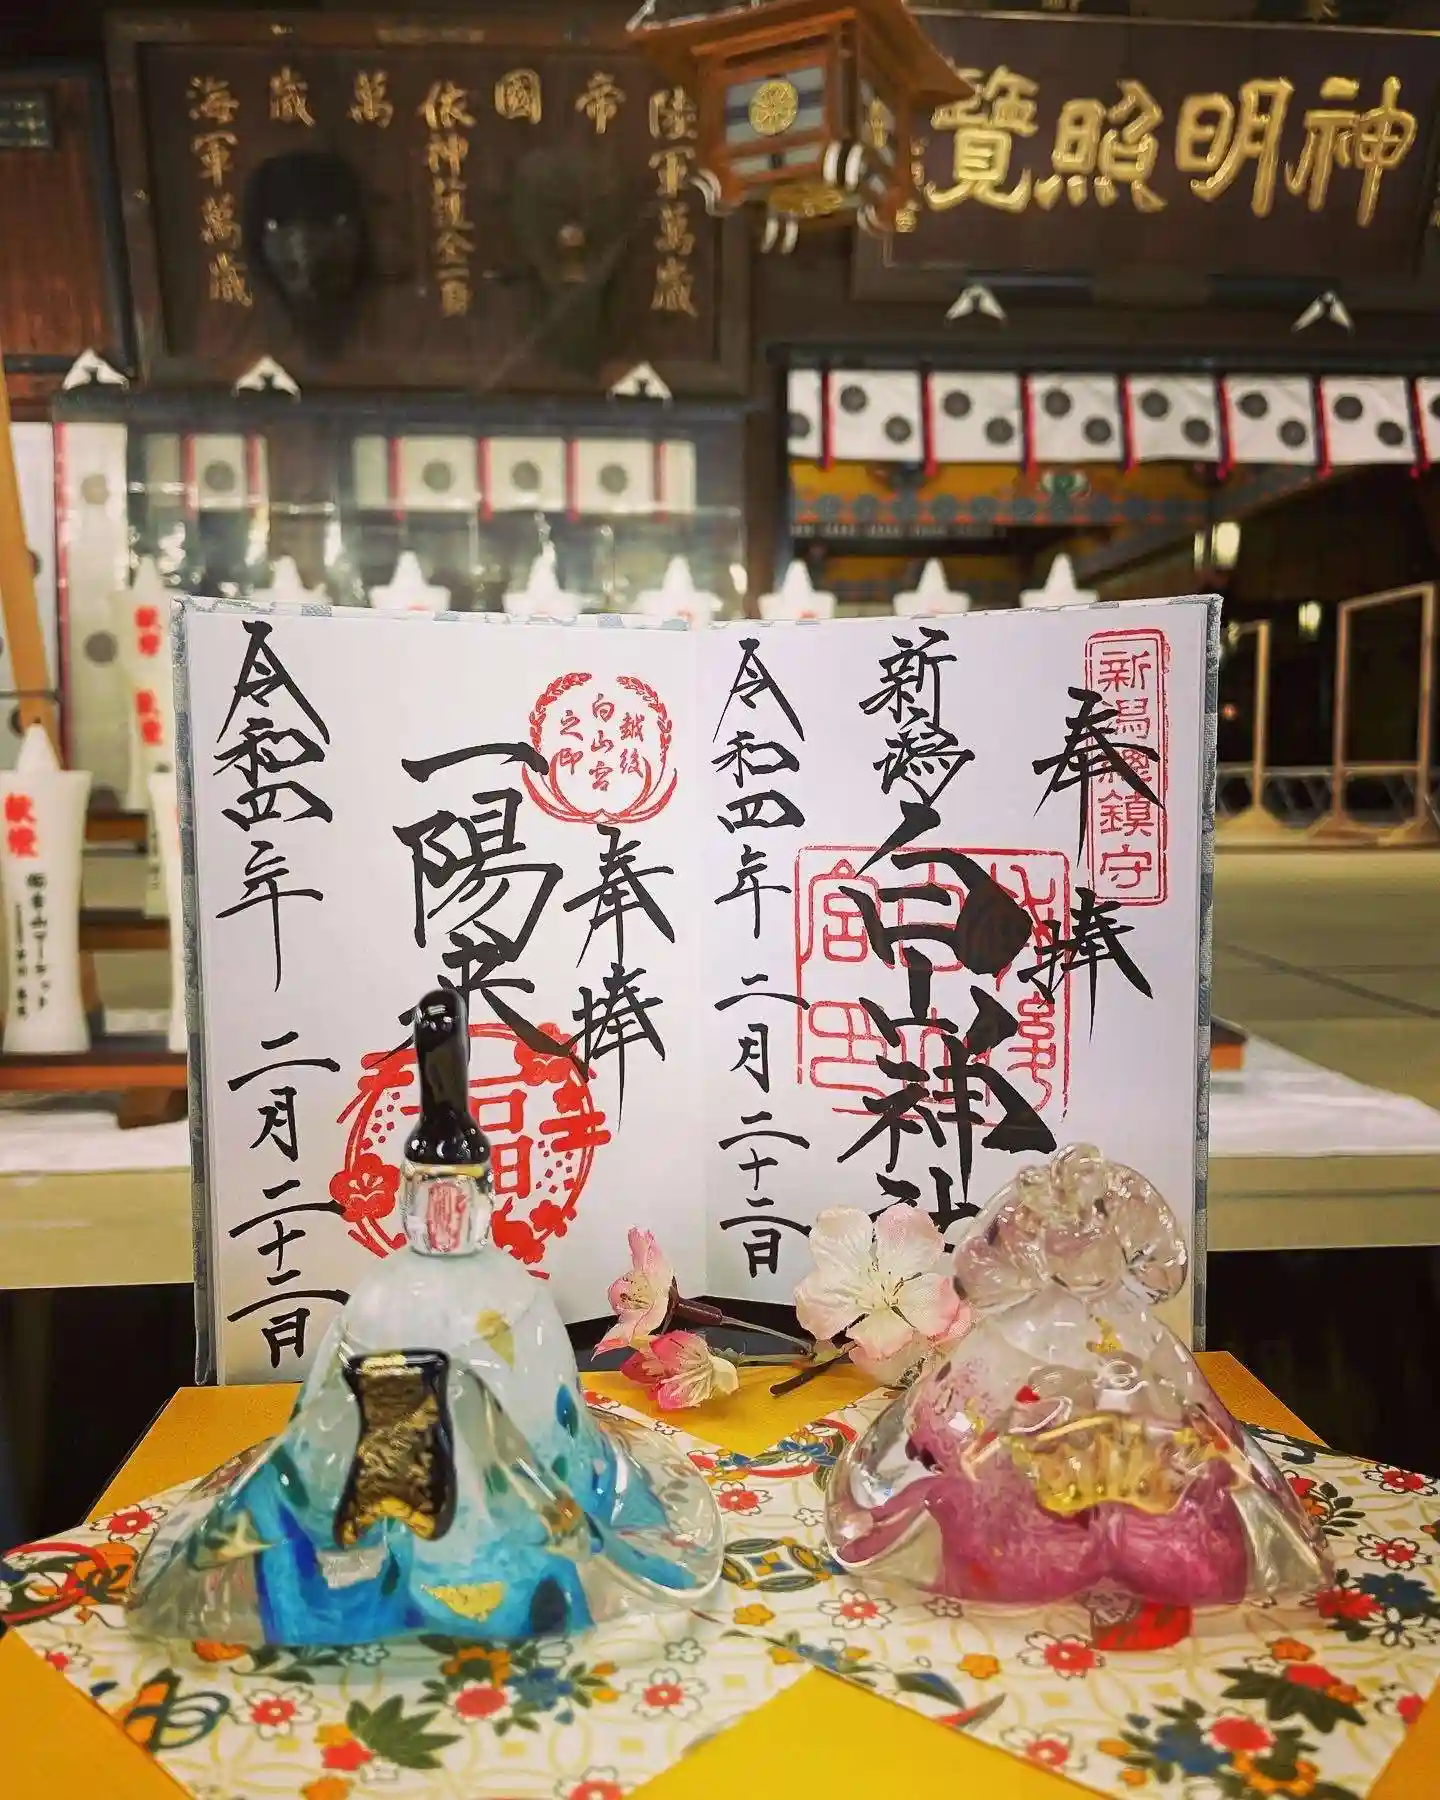 神明照覧
陸軍萬歳
帝國萬歳
依神護全一
海軍萬歳
新潟總鎮守
奉拝
新潟
白山神社
令和四年二月二十二日
越後
白山宮
之印
奉拝
一陽来
福
令和四年 二月二十二日
献燈
献燈
献燈